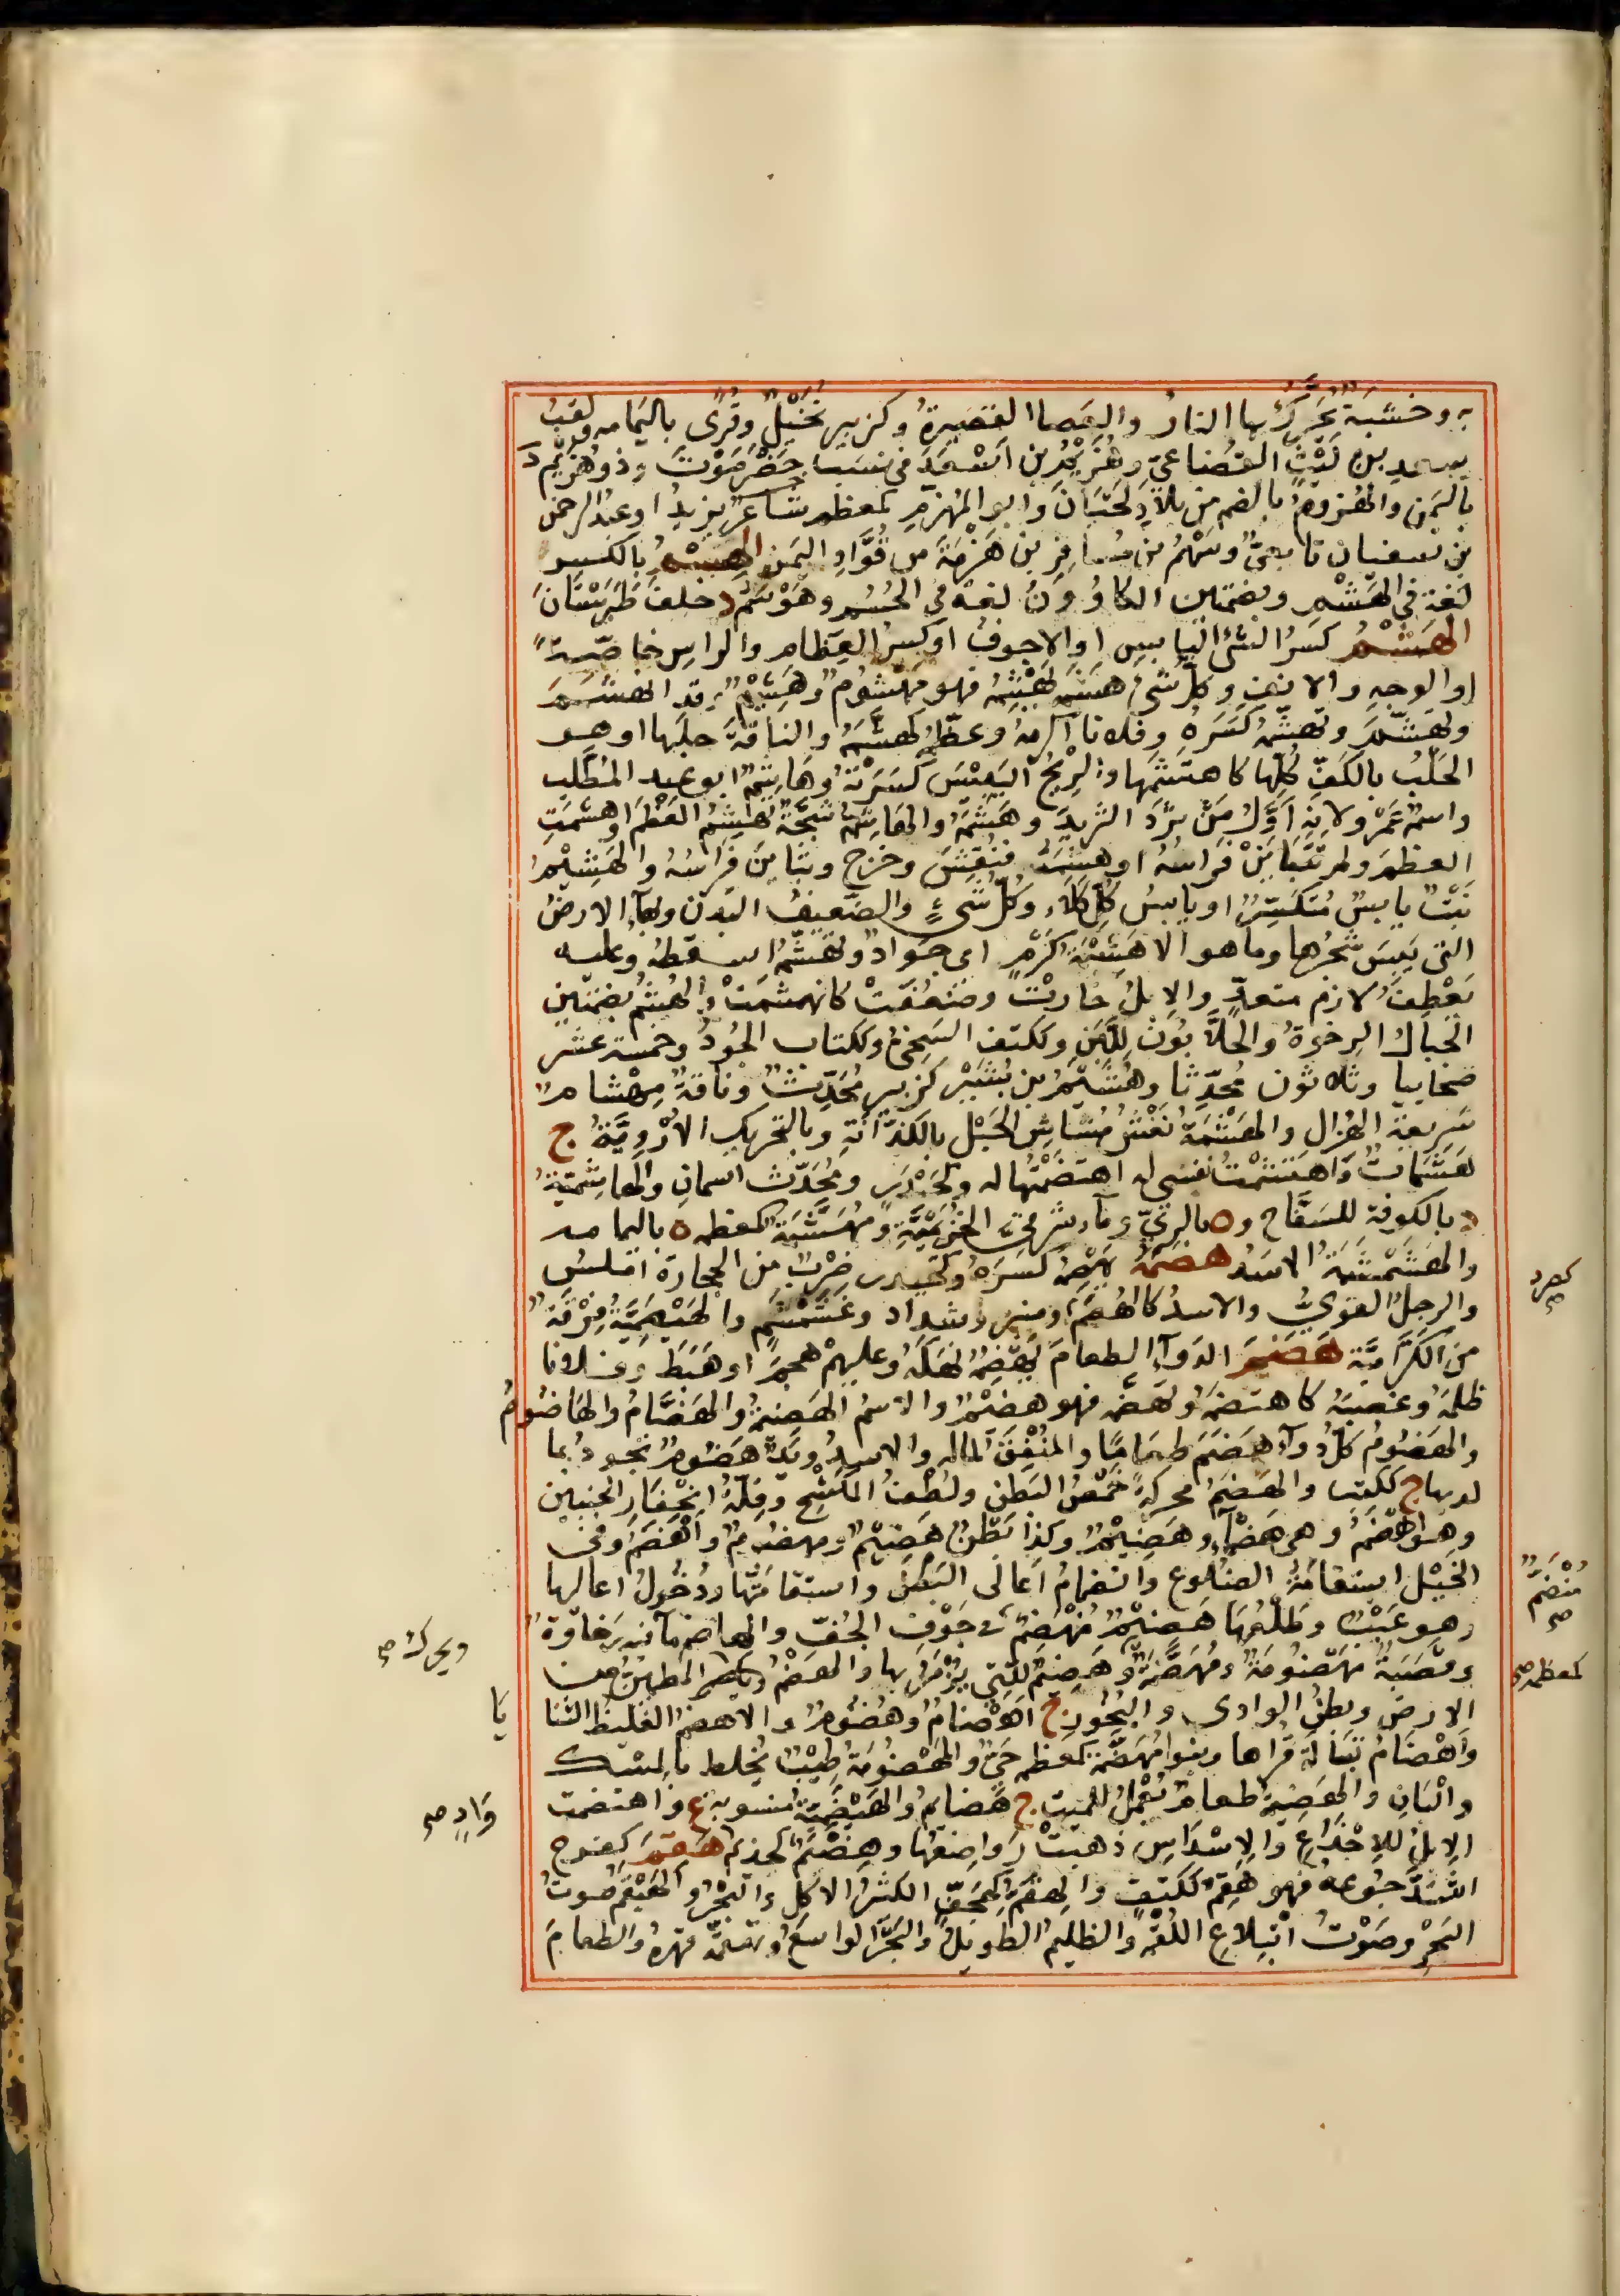 به وخشبة تُحَرَّكُ بها النارُ والعَصا القصيرةُ وكزبير نَخْلٌ وقُرًى باليَمامه ولقبُ
سعد بن لَيْثٍ القُضاعيّ وهُزَيْمُ بن اَسْعَدَ في نسب حَضْرَمَوْتَ وذو هُزَيْم د
باليَمَن والهُزومُ بالضم من بلادِ لحيَانَ وابو المُهَزِّمِ كمعظم شاعرٌ يزيدُ او عبدُ الرحمن
بن سفيان تابعيٌّ وسَهْمُ بن مُسافِرِ بن هَزْمَةَ من قُوَّادِ اليَمَن الهَسْمُ بالكسر
لُغة في الهَشْمِ وبضمتين الكاوُونُ لغة في الحُسُم وهَوْسَمُ د خلفَ طَبَرِسْتَانَ
الهَشْمُ كَسرُ الشئِ اليابسِ او الاجوفِ او كسرُ العِظَامِ والراسِ خاصّةً
او الوجهِ والانفِ او كلّ شئٍ هشَمَهُ يَهْشِمُهُ فهو مَهْشُومٌ وهَشِيمٌ وقد انهشَمَ
وتهشّمَ وتهشّمَهُ كَسَرَهُ وفلانا اكرمَهُ وعظّمَهُ كهَشَّمَهُ والناقةَ حلبَها او هو
الحَلْبُ بالكَفِّ كُلِّها كاهتشَمَها والرِيحُ اليَبيسَ كَسَرَتْهُ وهَاشِمٌ ابو عبد المُطَّلب
واسمُه عَمْرٌو لانه اَوَّلُ مَنْ ثَرَدَ الثَّرِيدَ وهَشَمَهُ والهاشِمَةُ شَجَّةٌ تَهْشِمُ العَظْمَ او هشَمَتِ
العظمَ ولم تَتَبايَنْ فَراشُهُ او هشَمَتْهُ فنُقِشَ وخرجَ وتبايَنَ فَراشُهُ والهَشِيمُ
نَبْتٌ يابسٌ مُتكسِّرٌ او يابسُ كلّ كَلَاٍ وكلّ شئٍ والضّعيفُ البَدَن وبهآءٍ الارضُ
التى يَبِسَ شجَرُها وماهو الا هَشِيمَةُ كَرَمٍ اى جَوَادٌ وتهَشّمَهُ استعطفَهُ وعليه
تعَطّفَ لازم متعدّ والابلُ خارَتْ وضعُفَتْ كانهشمَتْ والهُشُمُ بضمتين
الجبالُ الرِخوةُ والحلّابُونَ لِلَّبَن وككتف السَخِىُّ وككتاب الجُودُ وخمسة عشر
صحابيا وثلاثون مُحدّثا وهُشَيْمُ بن بُشَيْر كزبير مُحدِّثٌ وناقةٌ مِهْشامٌ
سَرِيعةُ الهُزال والهَشْمَةُ بالتحريك الاُرْوِيَّةُ ج
هَشَمَاتٌ واهتشمْتُ نفسى له اهتضمْتُها له وكحَيْدَرٍ ومُحَدِّثٍ اسمانِ والهاشميّةُ
د بالكوفة للسَفَّاح و ة بالرَيّ ومآء شرقىّ الخُزَيْميَّةِ ومُهَشَّمَةُ كمعظمة ة باليمامه
والهَشَمْشَمَةُ الاسَدُ هَصَمَهُ يَهصِمُهُ كَسَرَهُ وكحَيْدَرٍ ضَرْبٌ من الحِجارة اَملسُ
والرجلُ القوىُّ والاسدُ كالهُصَمِ ومنبر وشدّاد وغَشَمْشَمٍ والهَيْصَمِيَّةُ فِرْقَةٌ
من الكَرَّاميّة هَضَمَ الدَوآءُ الطعامَ يَهْضِمُهُ نهكَهُ وعليهم هجَمَ او هَبَطَ وفلانا
ظلمَهُ وغصَبَهُ كاهتضَمَهُ وتَهَضَّمَهُ فهو هضيمٌ والاسمُ الهَضِيمَةُ والهَضَّامُ والهاضُومُ
والهَضُومُ كلّ دوآءٍ هضَمَ طعامًا والمُنْفِقَ لماله والاسدُ ويَدٌ هَضُومٌ تجودُ بما
لديها ج ككتب والهَضَمُ محركةً خَمَصُ البَطن ولُطفُ الكَشْح وقلّةُ انجفارِ الجنبين
وهو اَهْضَمُ وهى هَضْمآءُ وهَضِيمٌ وكذا بَطْنٌ هَضِيمٌ ومهضومٌ واَهْضَمُ وفى
الخَيْل استقامةُ الضلوع وانضمامُ اَعالى البَطْن واستقامتُها ودُخُولُ اعاليها
وهو عَيْبٌ وطَلْعُها هَضِيمٌ مُنهَضِمٌ فى جَوْفِ الجُفّ والهاضم ما فيه رَخاوَةٌ
وقصَبَةٌ مَهْضُومَةٌ ومُهَضَّمَةٌ وهَضِيمٌ للّتى يُزْمَرُ بها والهَضْمُ ويكسر المطمئِنُّ من
الارض وبطنُ الوادى والبَخُورُ ج اَهْضامٌ وهُضُومٌ والاهضمُ الغليظُ الثنا
واَهْضامُ تَبَالَةَ قُراها وبنو مُهَضَّمَة كمعظمة حَىٌّ والمَهْضُومَةُ طِيْبٌ يُخلط بالمسْك
والْبَانِ والهَضِيمَةُ طعامٌ يُعمَلُ للميت ج هَضائِمُ والهَيْضَمِيَّةُ منسوبة ع واهتضمت
الابلُ للاِجْذاعِ والاِسْداسِ ذهبَتْ رَواضِعُها وهِضْيَمٌ كحذيم هَقِمَ كفرح
اشتَدَّ جُوعه فهو هَقِمٌ ككَتِفٍ والهِقَمُّ كهِجَفٍّ الكثيرُ الاكلِ والبَحْرُ والهَيْقَمُ صوتُ
البَحْر وصَوْتُ ابْتِلاعِ اللُقَم والظليمُ الطويلُ والبَحْرُ الواسعُ وتهقّمَهُ قهرَهُ والطعامَ
كصرد صح
مُنْضَمٌّ صح
كمعظمة صح
ويحرك صح
يَا
وَادٍ صح